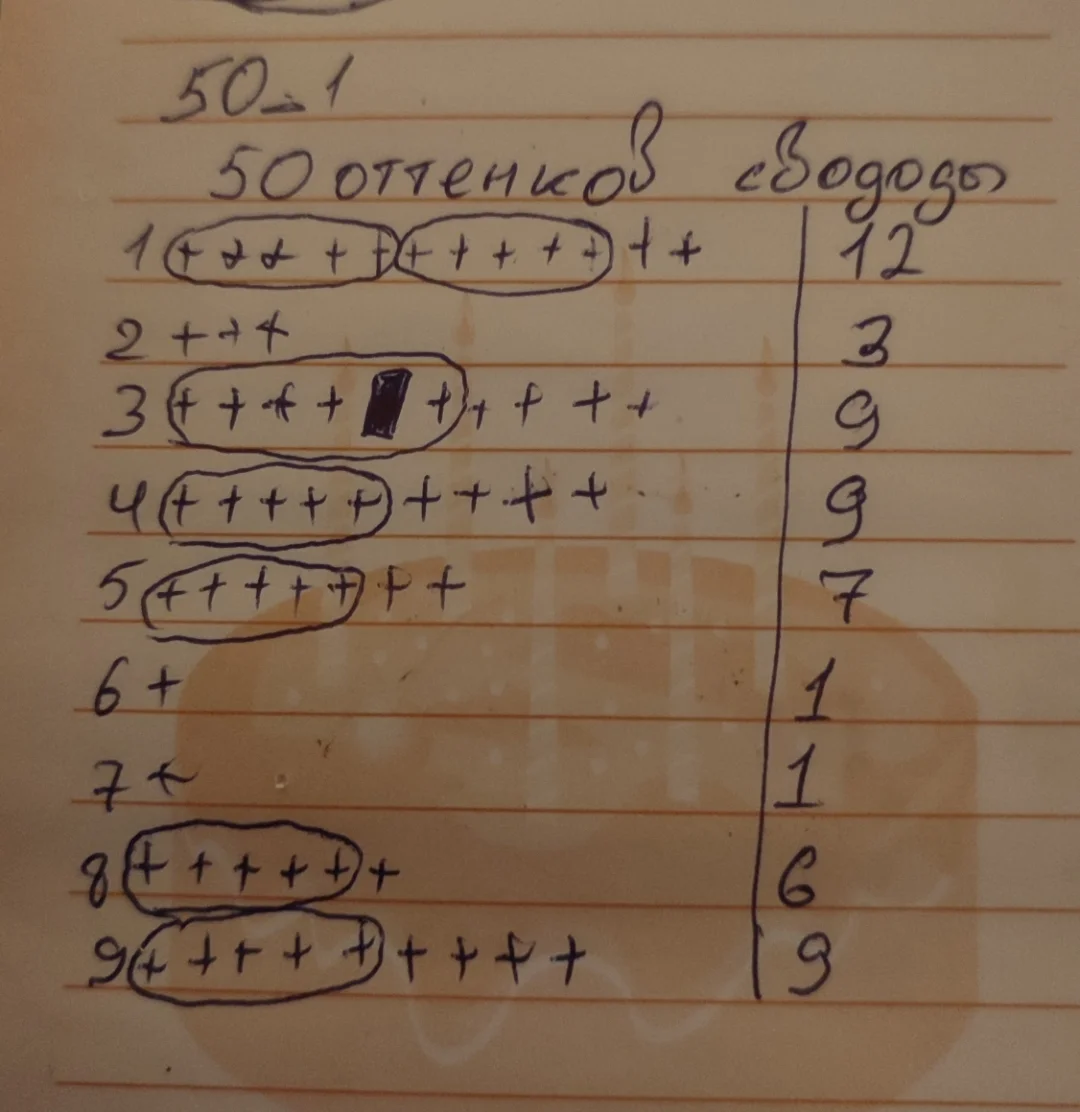 50_1
50 оттенков свододы
1 + + + + + + + + + + + + 12
2 + + + 3
3 + + + + + + + + + 9
4 + + + + + + + + + 9
5 + + + + + + + 7
6 + 1
7 + 1
8 + + + + + + 6
9 + + + + + + + + + 9